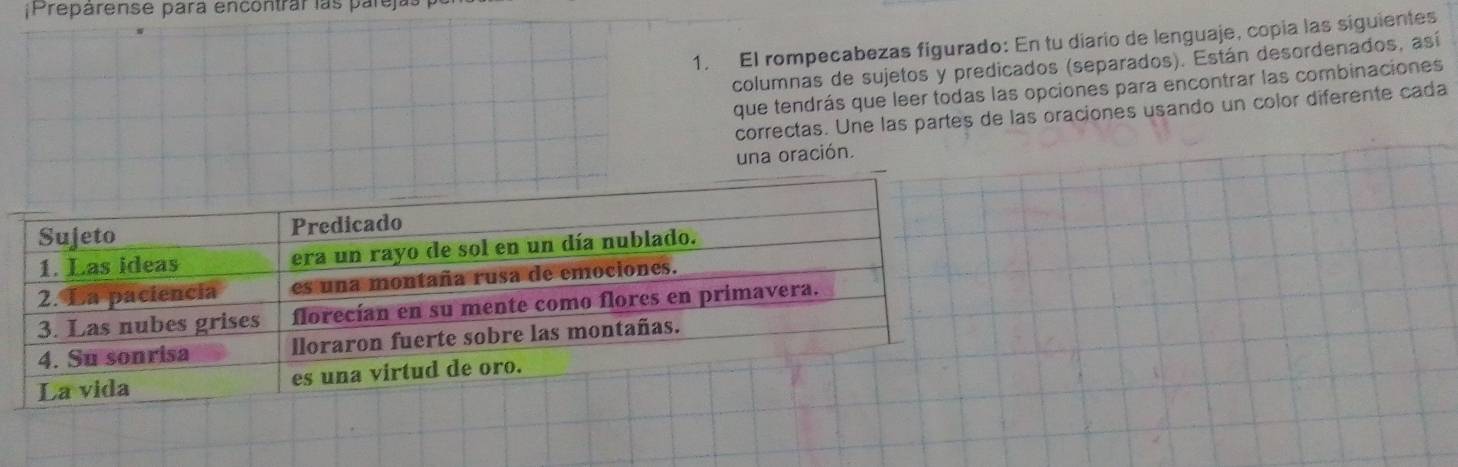 ¡Prepárense para encontrar las parejas
1. El rompecabezas figurado: En tu diario de lenguaje, copia las siguientes
columnas de sujetos y predicados (separados). Están desordenados, así
que tendrás que leer todas las opciones para encontrar las combinaciones
correctas. Une las partes de las oraciones usando un color diferente cada
una oración.
Sujeto Predicado
1. Las ideas era un rayo de sol en un día nublado.
2. La paciencia es una montaña rusa de emociones.
3. Las nubes grises florecían en su mente como flores en primavera.
4. Su sonrisa lloraron fuerte sobre las montañas.
La vida es una virtud de oro.